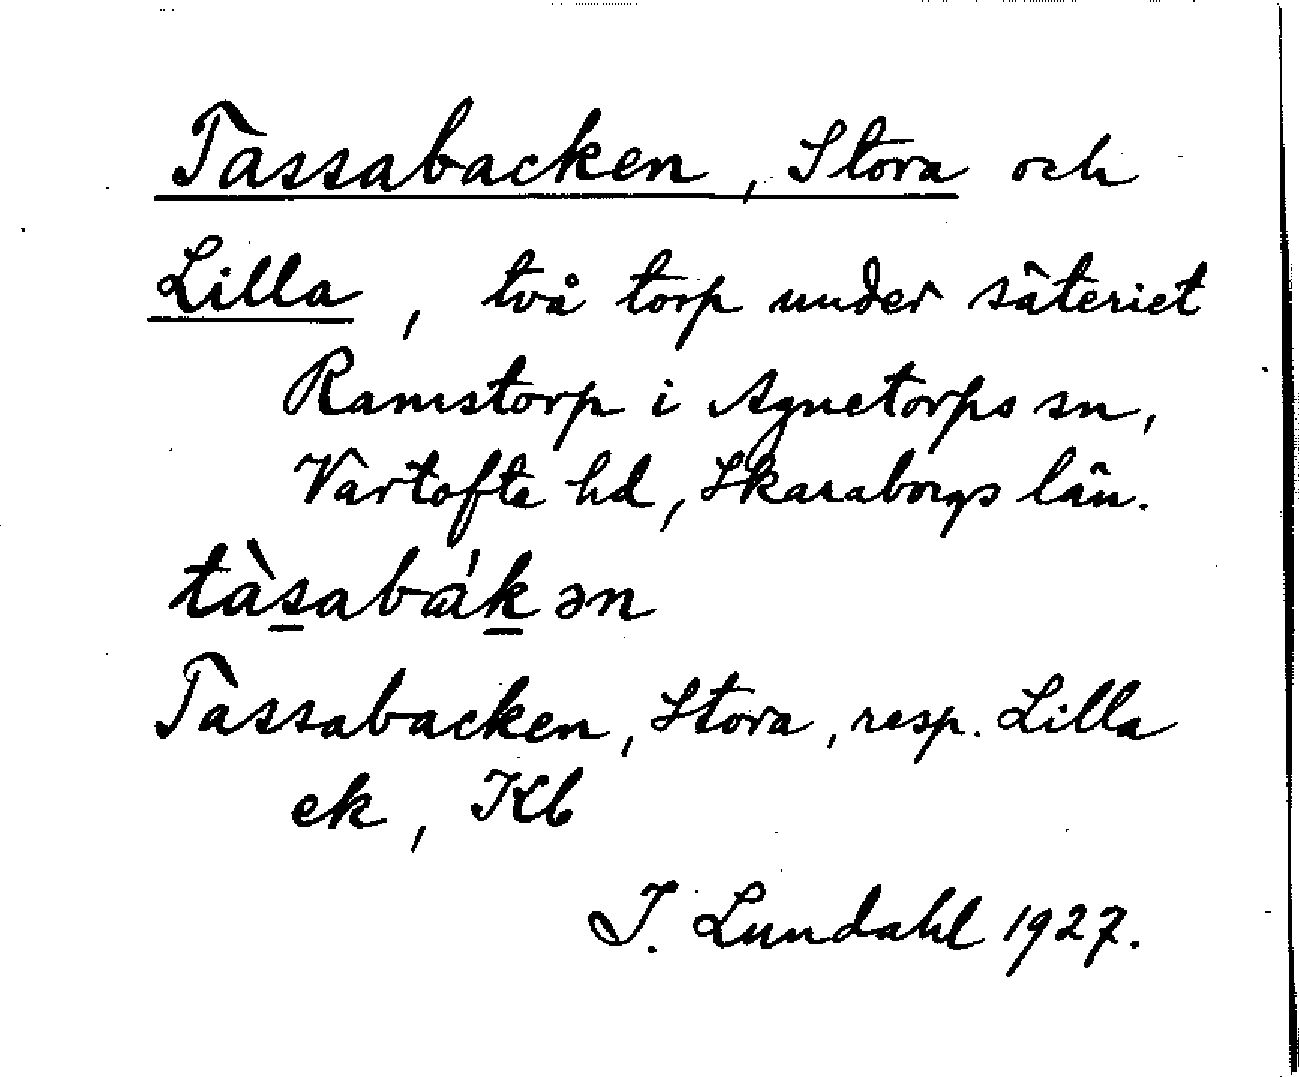 Tassabacken, Stora och
Lilla, två torp under säteriet
Ramstorp i Agnetorps sn,
Vartofta hd, Skaraborgs län.
tàsabák ən
Tassabacken, Stora, resp. Lilla
ek, Kb
I. Lundahl 1927.